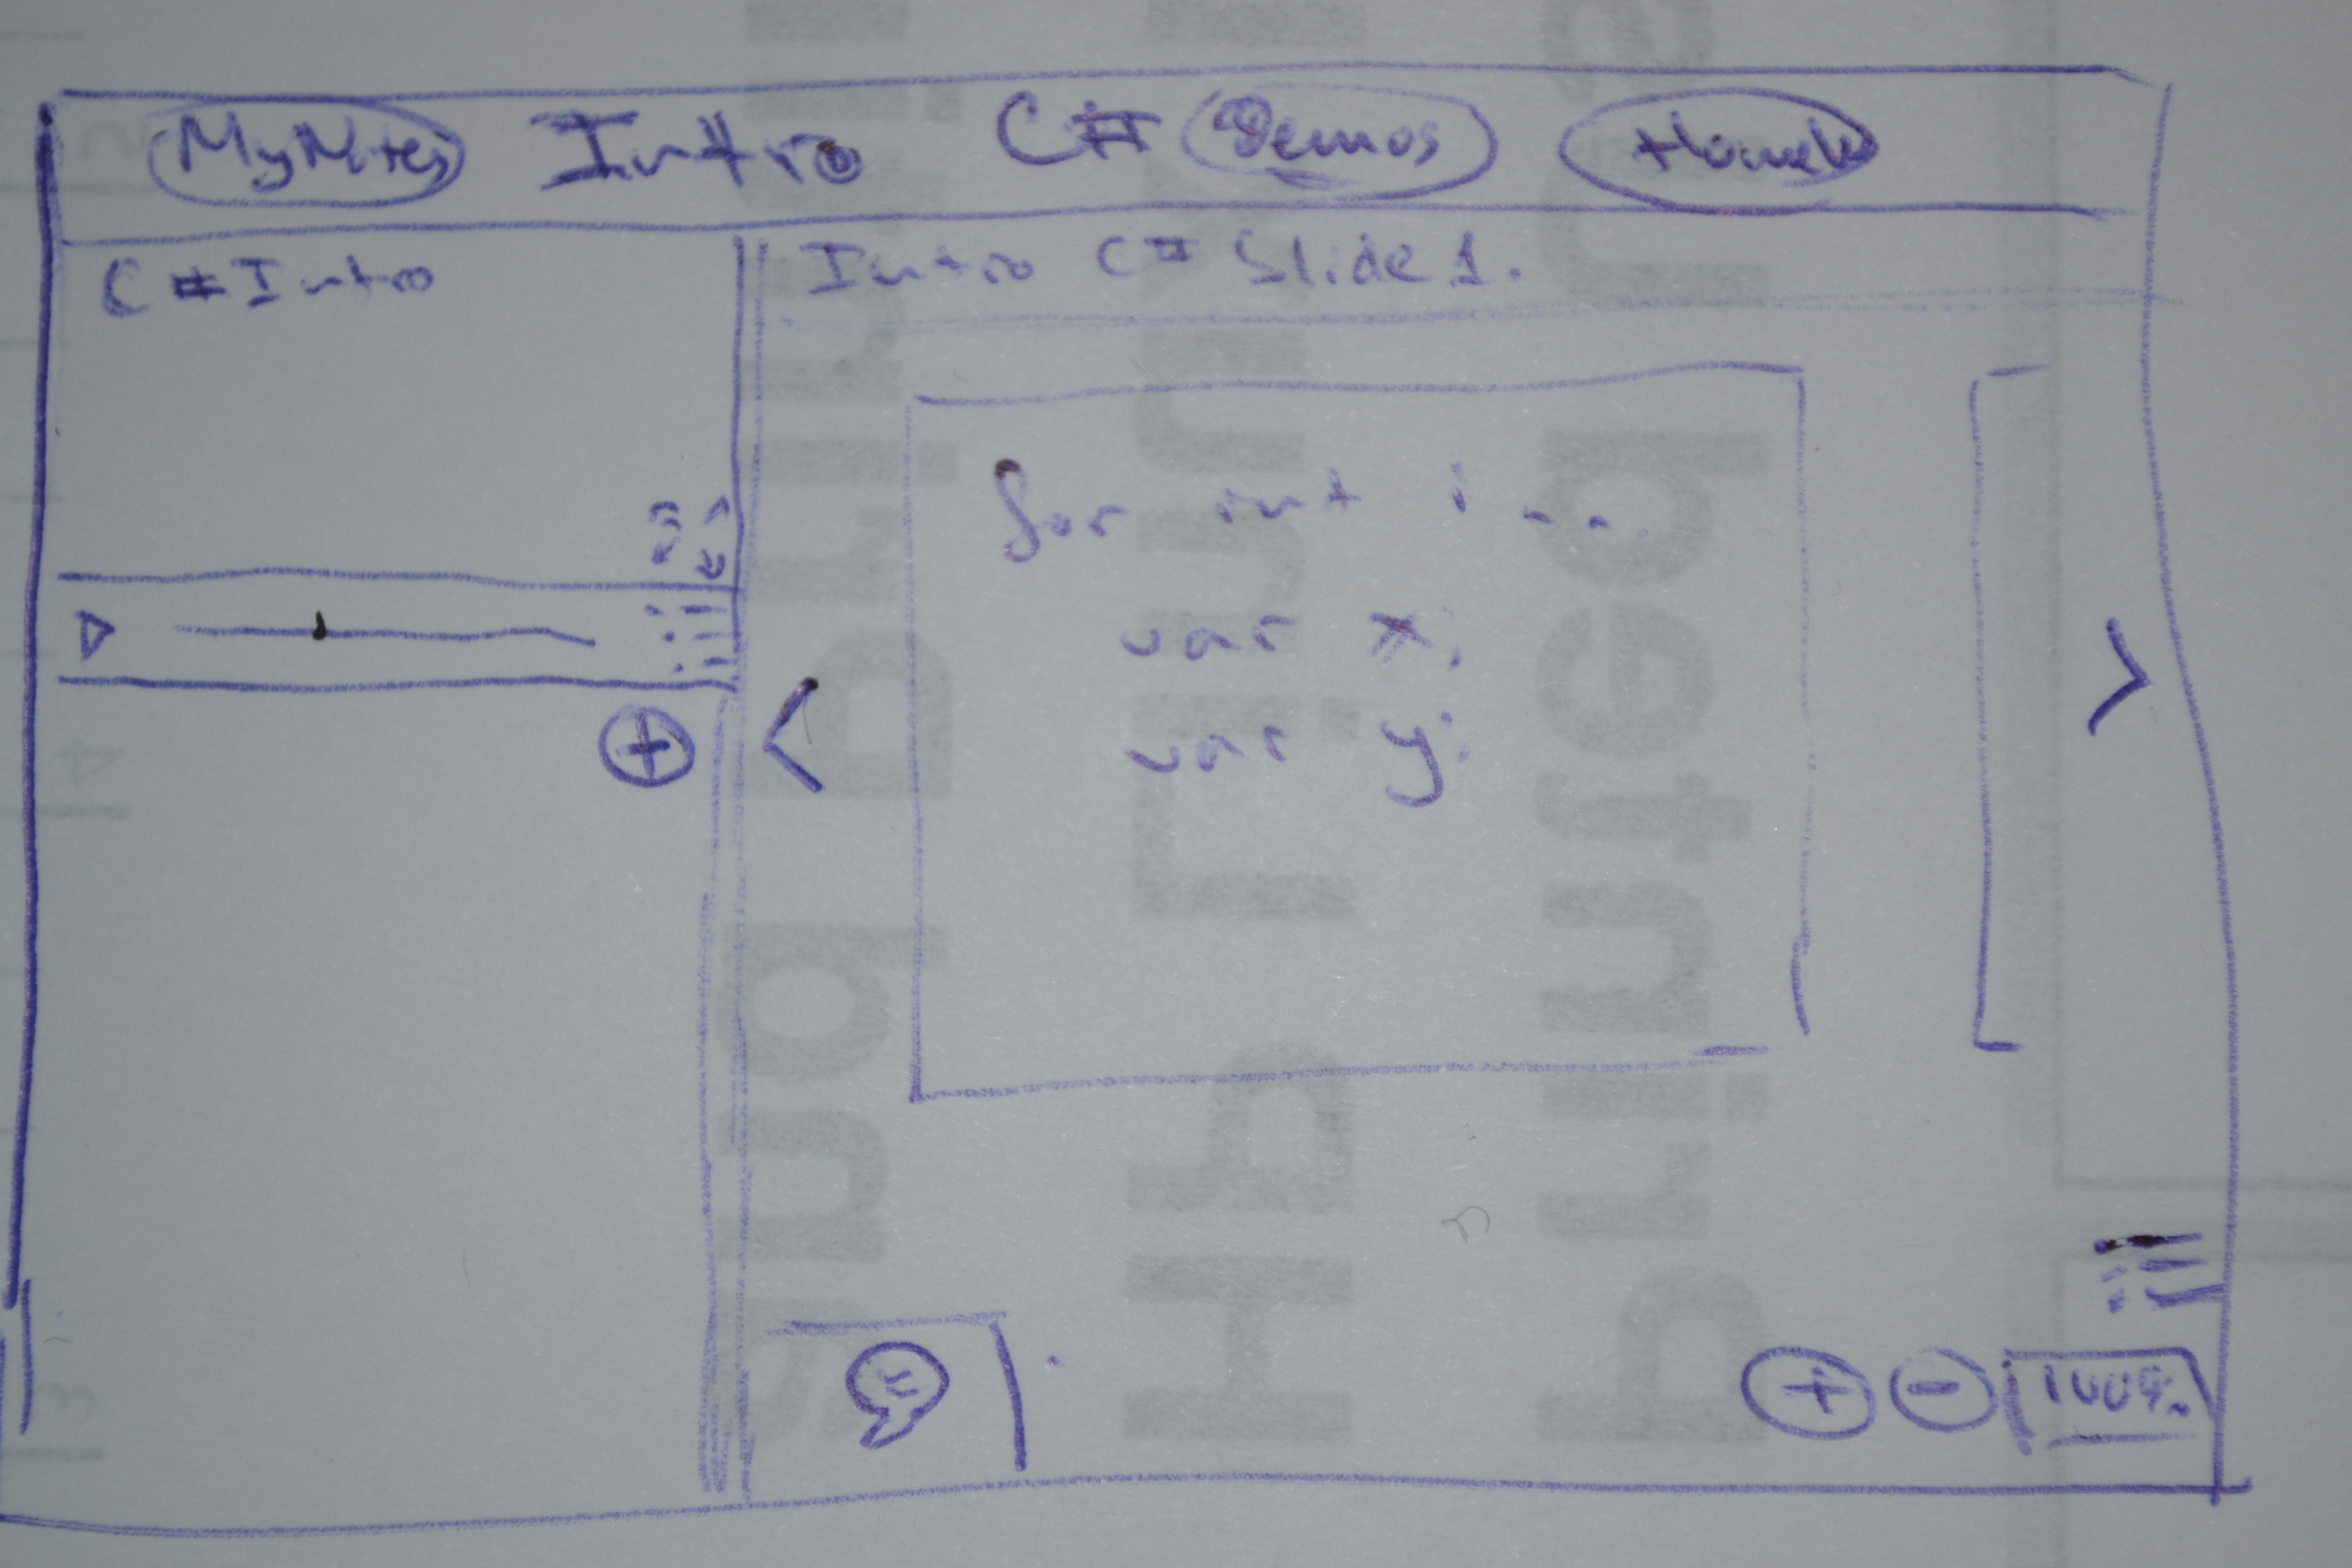 MyNotes Intro C# Demos
C# Intro
Intro C# Slide 1.
for int i ...
var x;
var y;
100%